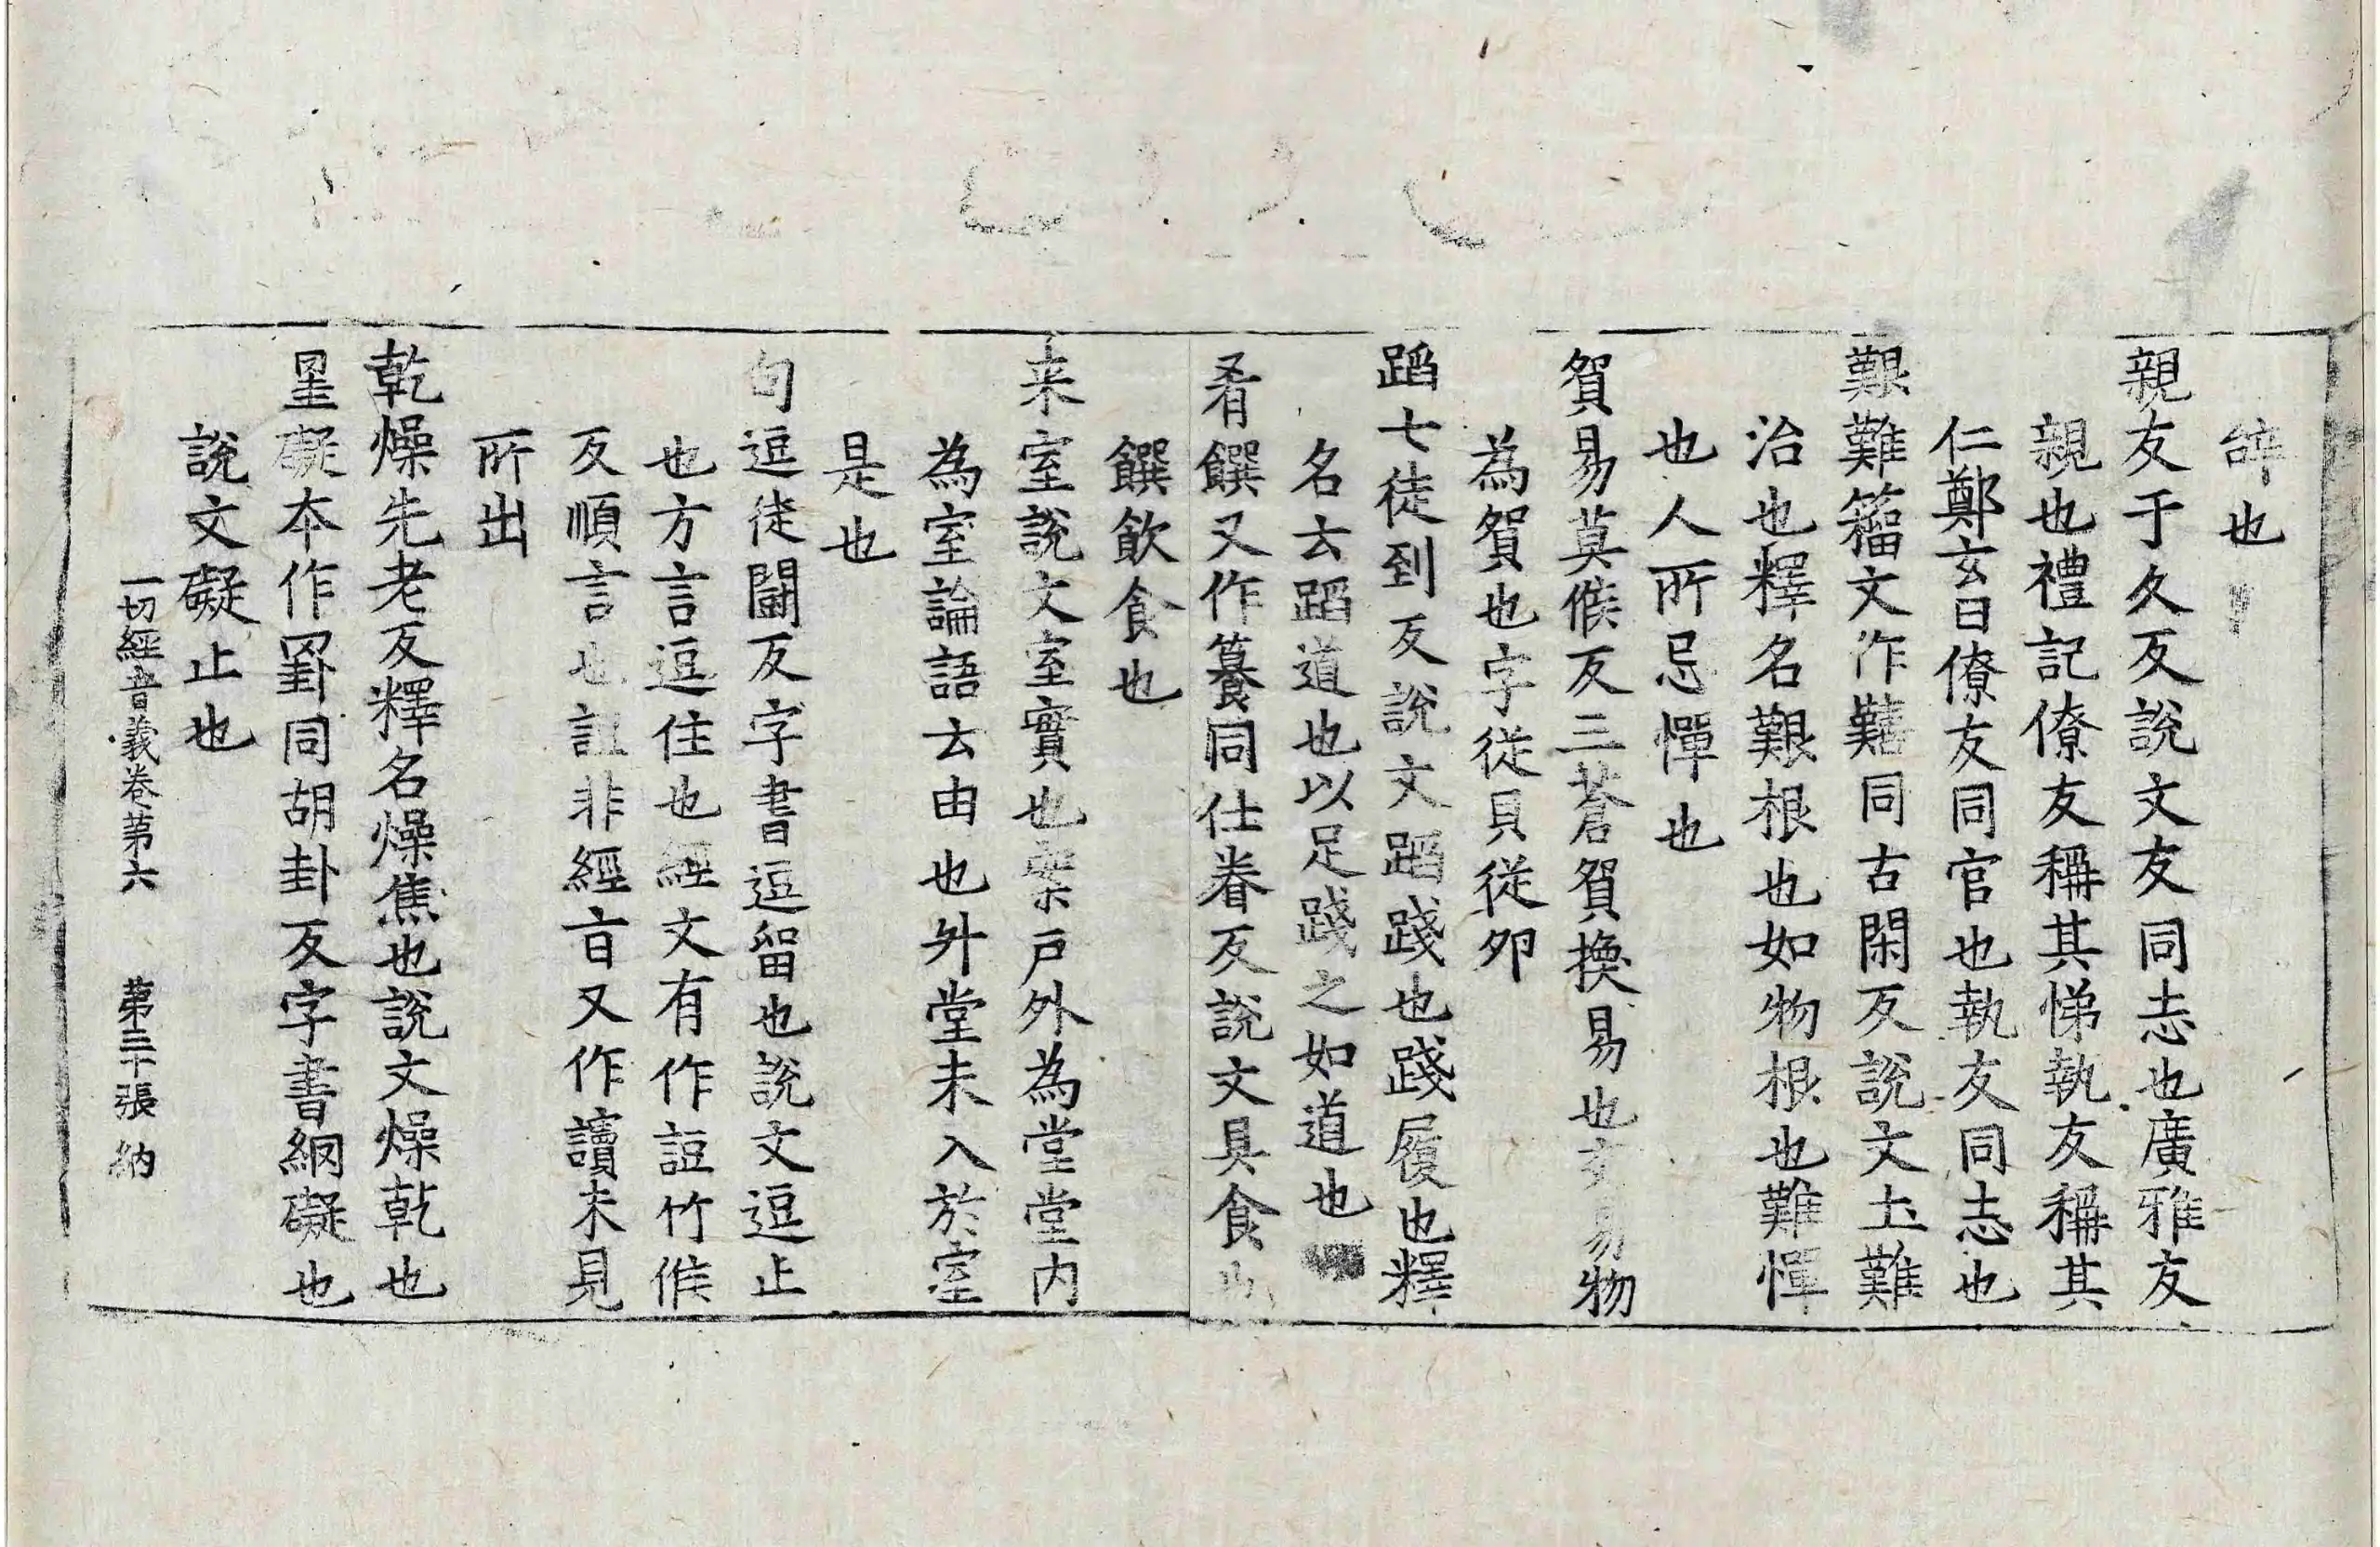 辤也
親友于久反說文友同志也廣雅友
親也禮記僚友稱其悌執友稱其
仁鄭玄曰僚友同官也執友同志也
艱難籀文作囏同古閑反說文土難
治也釋名艱根也如物根也難憚
也人所忌憚也
貿易莫候反三蒼貿換易也交易物
為貿也字從貝從卯
蹈七徒到反說文蹈踐也踐履也釋
名云蹈道也以足踐之如道也
肴饌又作籑同仕眷反說文具食也
饌飲食也
来室說文室實也案戶外為堂堂内
為室論語云由也升堂未入於室
是也
句逗徒鬪反字書逗留也說文逗止
也方言逗住也經文有作䛠竹候
反䛠言也䛠非經旨又作讀未見
所出
乾燥先老反釋名燥焦也說文燥乾也
罣礙本作罫同胡卦反字書網礙也
說文礙止也
一切經音義卷第六 第三十張 納